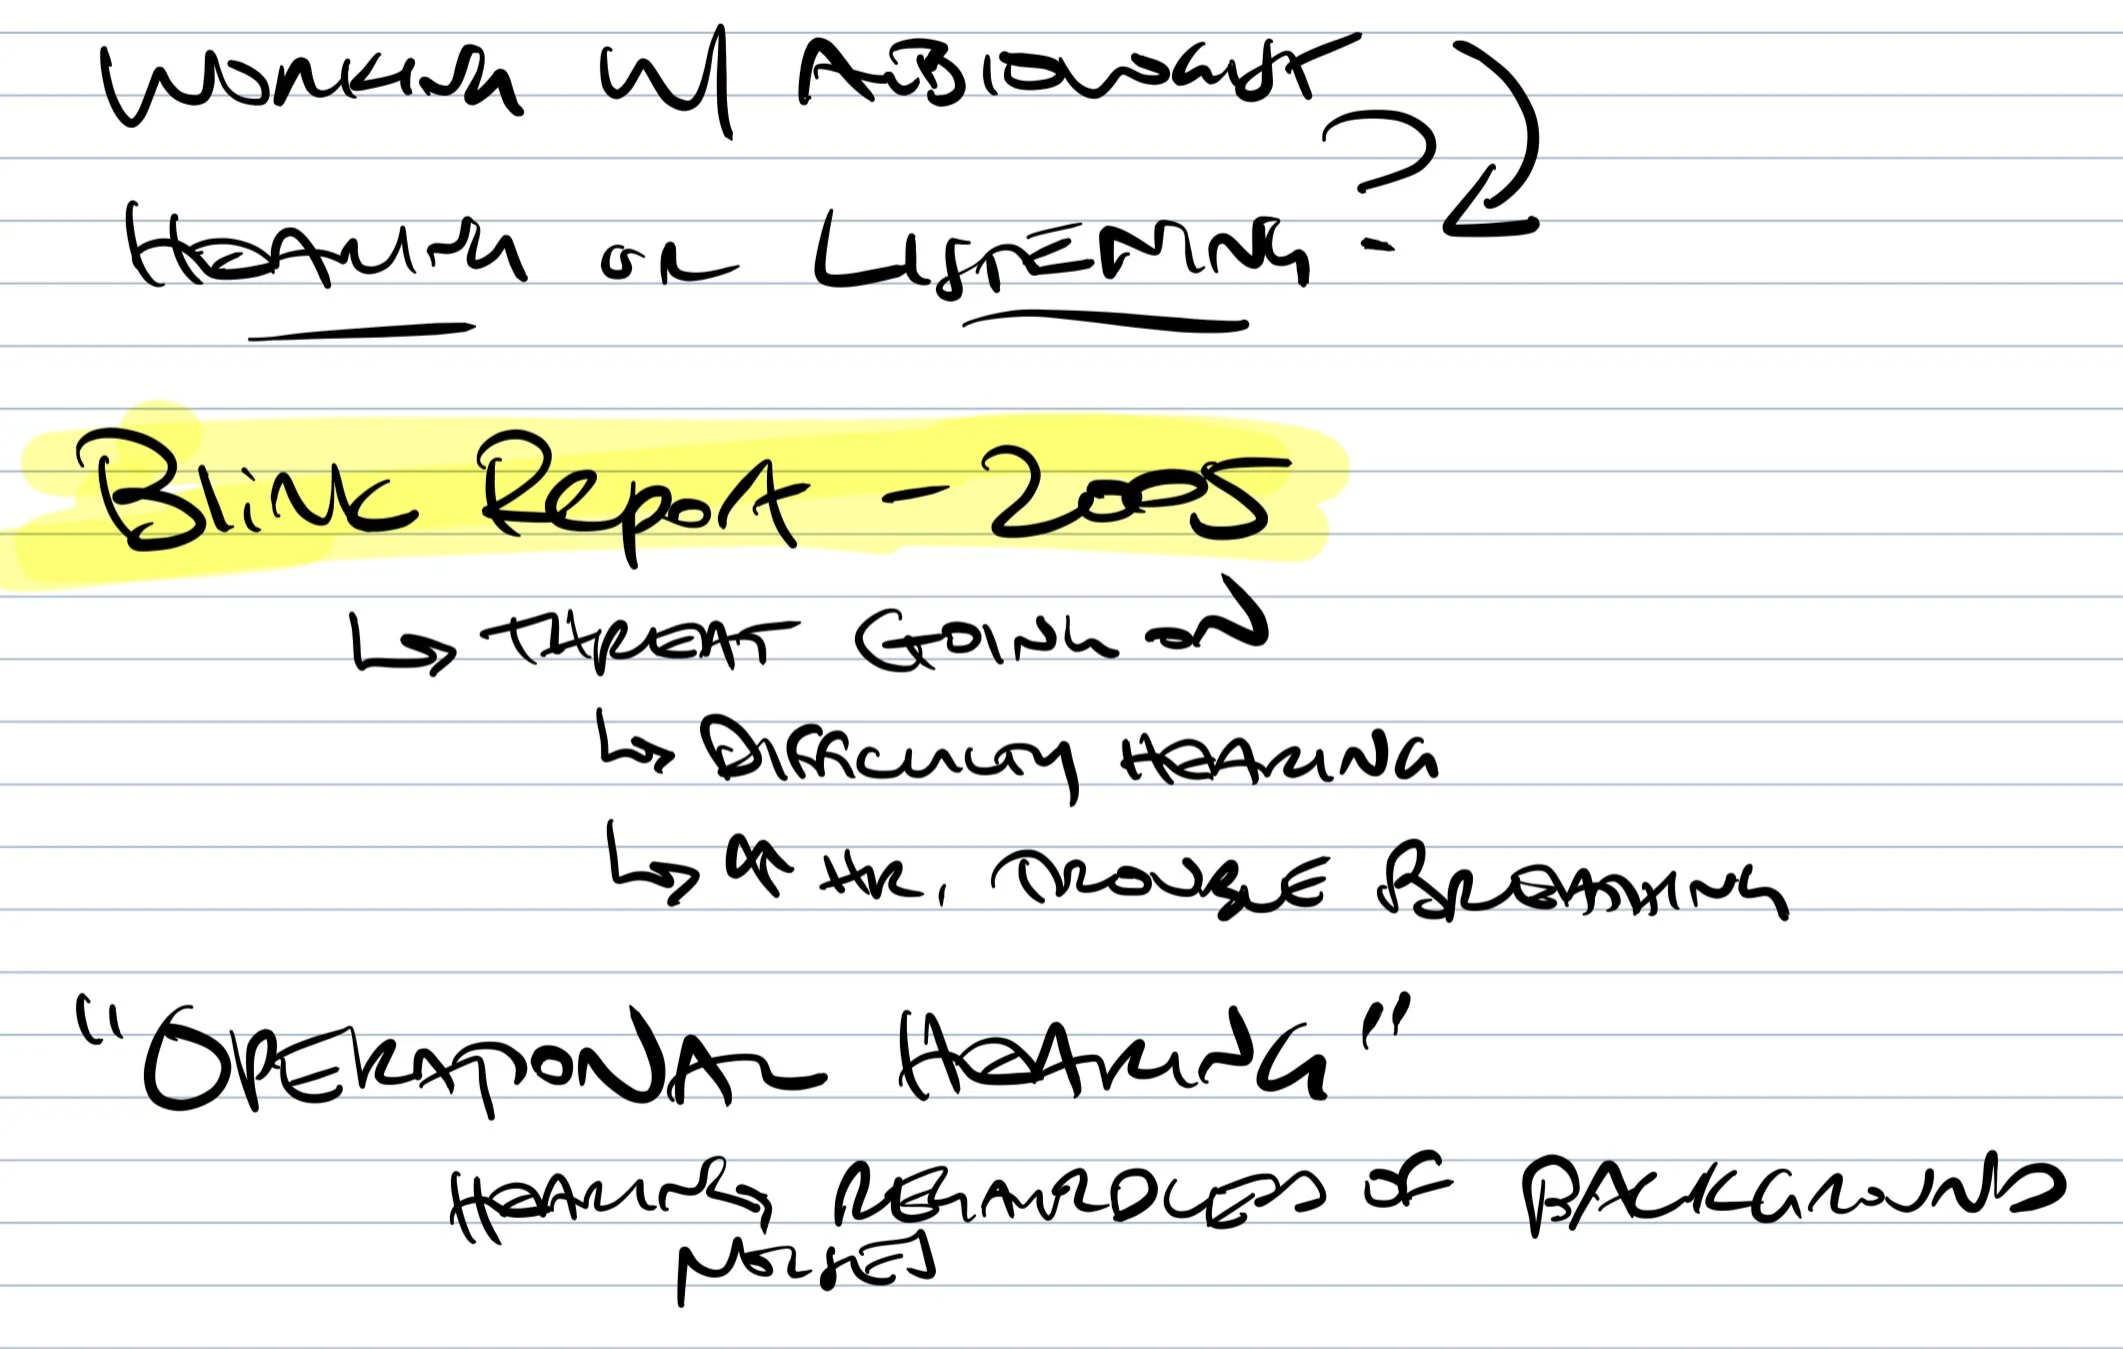 WORKING W/ AUDIOLOGIST
HEARING OR LISTENING?
Blink Report - 2005
↳ THREAT GOING ON
↳ DIFFICULTY HEARING
↳ ↑ HR, TROUBLE BREATHING
"OPERATIONAL HEARING"
HEARING REGARDLESS OF BACKGROUND
NOISES